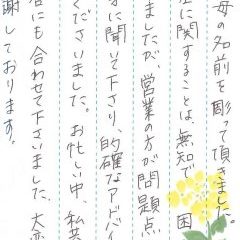 母の名前を彫って頂きました。
に関することは、無知で、困
ましたが、営業の方が問題点
に聞いて下さり、的確なアドバイ
くださいました。お忙しい中、私共
にも合わせて下さいました、大変
謝しております。